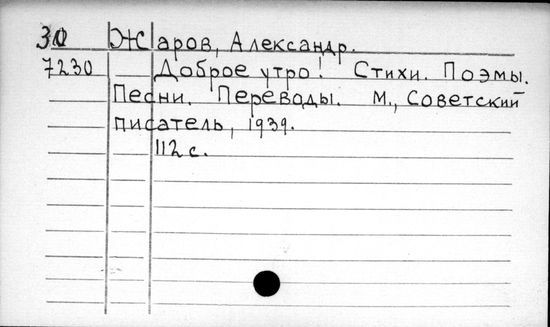 30 Жаров, Александр.
7230 Доброе утро! Стихи. Поэмы.
Песни. Переводы. М., Советский
писатель, 1939.
112 с.